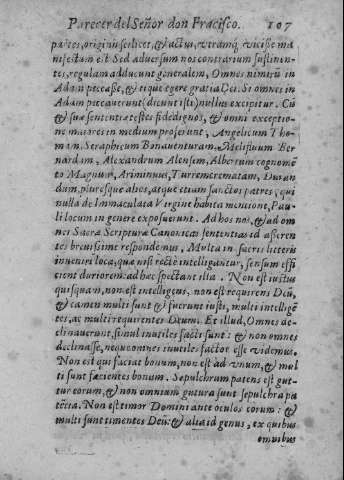 Parecer del Señor don Frãcisco. 107
partes, originis scilicet, & actui, utramq; vicisse ma
nifestum est Sed adversum nos contrarium sustinin-
tes, regulam adducunt generalem, Omnes nimirũ in
Adam peccasse, & eique egere gratia Dei. Si omnes in
Adam peccaverunt (dicunt isti) nullus excipitur. Cũ
& suæ sententiæ testes fidedignos, & omni exceptio-
ne maiores in medium proferunt, Angelicum Tho-
mam. Seraphicum Bonaventuram. Melifluum Ber
nardum, Alexandrum Alensem, Albertum cognomẽ
to Magnum, Ariminuus, Turremcrematam, Duran
dum, pluresque alios, atque etiam sanctos patres, qui
nulla de Immaculata Virgine habita mencione, Pau-
li locum in genere exposuerunt. Ad hos nos, & ad om
nes Sacræ Scripturæ Canonicas sententias id asseren
tes brevissime respondemus, Multa in sacris litteris
inveniri loca, quæ nisi rectè intelligantur, sensum effi
cient duriorem: ad hæc spectant illa. Non est iustus
quisquam, non est intelligens, non est requirens Deũ,
& tamen multi sunt & fuerunt iusti, multi intelligẽ-
tes, ac multi requirentes Deum. Et illud, Omnes de-
clinaverunt, simul inutiles facti sunt: & non omnes
declinasse, neque omnes inutiles factos esse videmus.
Non est qui faciat bonum, non est ad vnum, & mul
ti sunt facientes bonum. Sepulchrum patens est gut-
tur eorum, & non omnium gutura sunt sepulchra pa
tẽcia. Non est timor Domini ante oculos eorum: &
multi sunt timentes Deũ: & alia id genus, ex quibus
omnibus